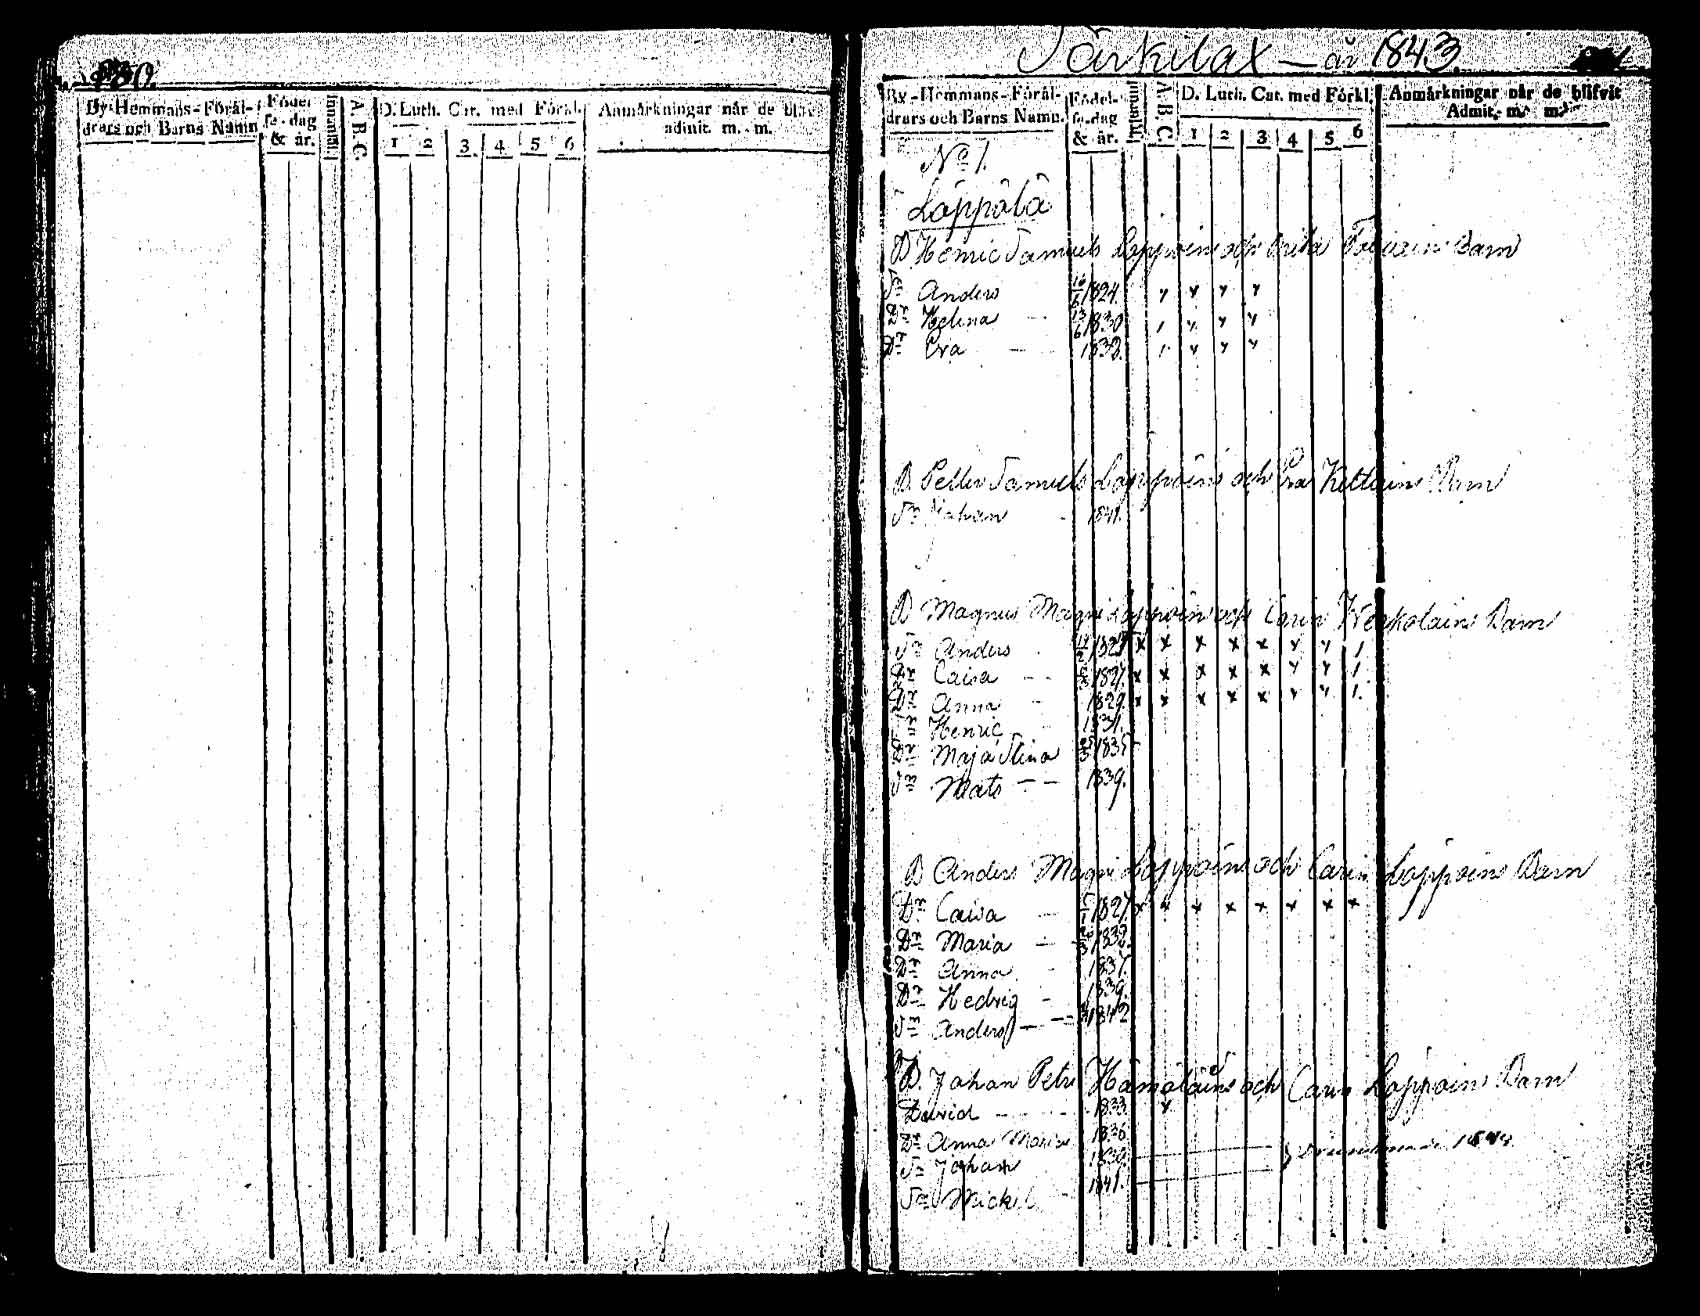 By-Hemmans-Föräl-
drars och Barns Namn
Födel-
se-dag
& år.
Innantil.
A. B. C.
D. Luth. Cat. med Förkl.
1 2 3 4 5 6
Anmärkningar när de blifvit
admit. m. m.
Särkilax — år 1843.
By-Hemmans-Föräl-
drars och Barns Namn.
Födel-
se-dag
& år.
Innantil.
A. B. C.
D. Luth. Cat. med Förkl.
1 2 3 4 5 6
Anmärkningar när de blifvit
Admit. m. m.
No 1.
Lappälä
B. Henric Samuels Lappoins och Brita Barn
Sn Anders 1824.
Dr Helena 13/6 1830
Dr Eva 1838.
B. Petter Samuels Lappoins och Eva Kettuins Barn
Sn Johan 1841.
B Magnus Magni Lappoins och Carin Werkolains Barn
Sn Anders
Dr Caisa 1827.
Dr Anna 1829.
Sn Henric 1831.
Dr Maja Stina 1835
Sn Mats 1839.
B Anders Magni Lappoins och Carin Lappoins Barn
Dr Caisa 1827.
Dr Maria
Dr Anna 1837.
Dr Hedvig 1839.
Sn Anders 1842
B. Johan Petri Hämäläins och Carin Lappoins Barn
David 1833.
Dr Anna Maria 1836
Sn Johan 1839.
Sn Mickel 1841.